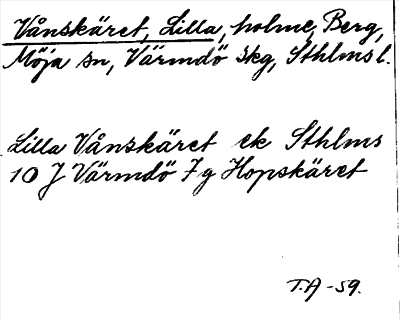 Vånskäret, Lilla, holme, Berg,
Möja sn, Värmdö skg, Sthlms l.
Lilla Vånskäret ek Sthlms
10 J Värmdö 7 g Hopskäret
T.A -59.